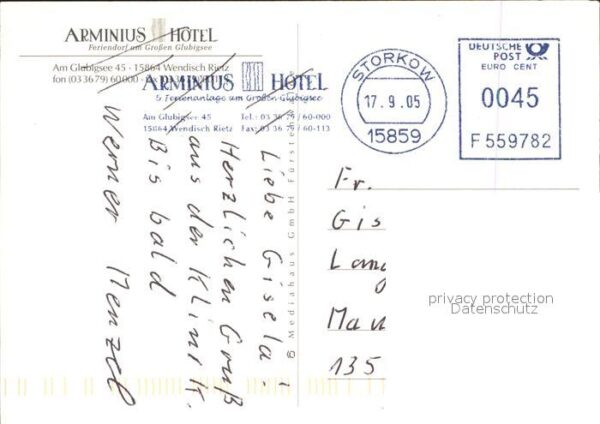 ARMINIUS HOTEL
Feriendorf am Großen Glubigsee
Am Glubigsee 45 - 15864 Wendisch Rietz
fon (033679) 60000 -
ARMINIUS HOTEL
& Ferienanlage am Großen Glubigsee
Am Glubigsee 45 Tel.: 03 36 79 / 60-000
15864 Wendisch Rietz Fax: 03 36 79 / 60-113
STORKOW
17.9.05
15859
DEUTSCHE POST
EURO CENT
0045
F 559782
Liebe Gisela!
Herzlichen Gruß
aus der Klinik.
Bis bald
Werner Menzel
© Mediahaus GmbH
Fr.
Gis
Lang
Man
135
privacy protection
Datenschutz